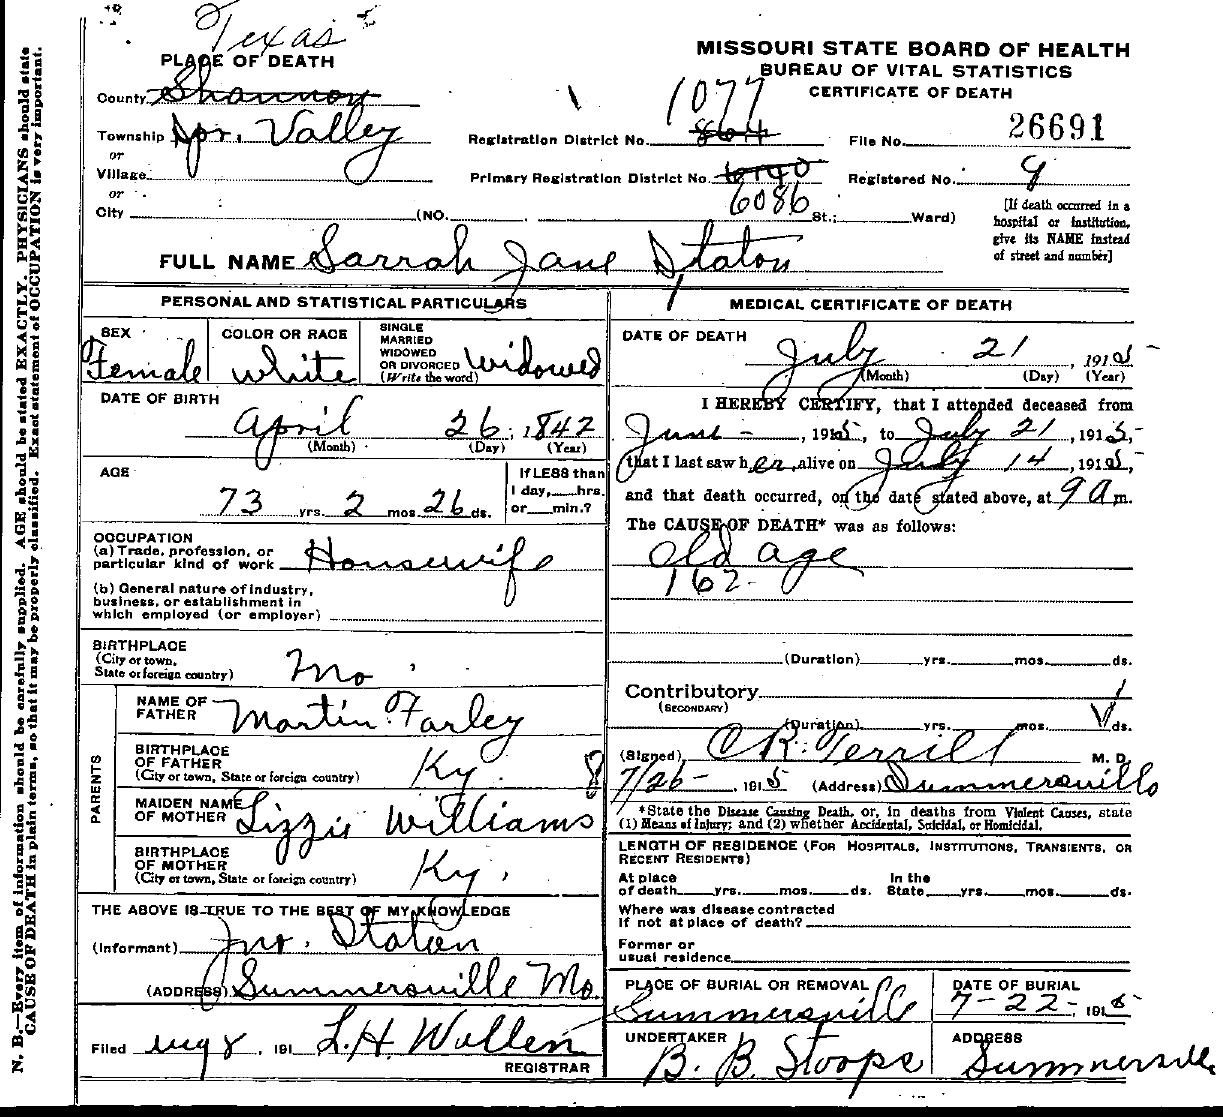 Texas
PLACE OF DEATH
County Shannon
Township Spr. Valley
or
Village
or
City (NO. St.; Ward)
MISSOURI STATE BOARD OF HEALTH
BUREAU OF VITAL STATISTICS
CERTIFICATE OF DEATH
1077
Registration District No. 864 File No. 26691
Primary Registration District No. Registered No. 9
6086
[If death occurred in a
hospital or institution,
give its NAME instead
of street and number]
FULL NAME Sarrah Jane Staton
PERSONAL AND STATISTICAL PARTICULARS
SEX
Female
COLOR OR RACE
White
SINGLE
MARRIED
WIDOWED
OR DIVORCED
(Write the word)
Widowed
DATE OF BIRTH
April 26, 1842
(Month) (Day) (Year)
AGE
73 yrs. 2 mos. 26 ds.
If LESS than
1 day, hrs.
or min.?
OCCUPATION
(a) Trade, profession, or
particular kind of work Housewife
(b) General nature of industry,
business, or establishment in
which employed (or employer)
BIRTHPLACE
(City or town,
State or foreign country) Mo
PARENTS
NAME OF
FATHER Martin Farley
BIRTHPLACE
OF FATHER
(City or town, State or foreign country) Ky.
MAIDEN NAME
OF MOTHER Lizzie Williams
BIRTHPLACE
OF MOTHER
(City or town, State or foreign country) Ky.
THE ABOVE IS TRUE TO THE BEST OF MY KNOWLEDGE
(Informant) Jno. Staton
(ADDRESS) Summersville Mo.
Filed Aug 8, 191 L. H. Wallen
REGISTRAR
MEDICAL CERTIFICATE OF DEATH
DATE OF DEATH
July 21, 1915
(Month) (Day) (Year)
I HEREBY CERTIFY, that I attended deceased from
June -, 1915, to July 21, 1915,
that I last saw her alive on July 14, 1915,
and that death occurred, on the date stated above, at 9 a m.
The CAUSE OF DEATH* was as follows:
Old age
162-
(Duration) yrs. mos. ds.
Contributory
(SECONDARY)
(Duration) yrs. mos. ds.
(Signed) C R. Terrill M. D.
7/26-, 1915 (Address) Summersville
*State the Disease Causing Death, or, in deaths from Violent Causes, state
(1) Means of Injury; and (2) whether Accidental, Suicidal, or Homicidal.
LENGTH OF RESIDENCE (FOR HOSPITALS, INSTITUTIONS, TRANSIENTS, OR
RECENT RESIDENTS)
At place In the
of death yrs. mos. ds. State yrs. mos. ds.
Where was disease contracted
if not at place of death?
Former or
usual residence
PLACE OF BURIAL OR REMOVAL
Summersville
DATE OF BURIAL
7-22-, 1915
UNDERTAKER
B. B. Stoops
ADDRESS
Summersville
N. B.—Every item of information should be carefully supplied. AGE should be stated EXACTLY. PHYSICIANS should state
CAUSE OF DEATH in plain terms, so that it may be properly classified. Exact statement of OCCUPATION is very important.